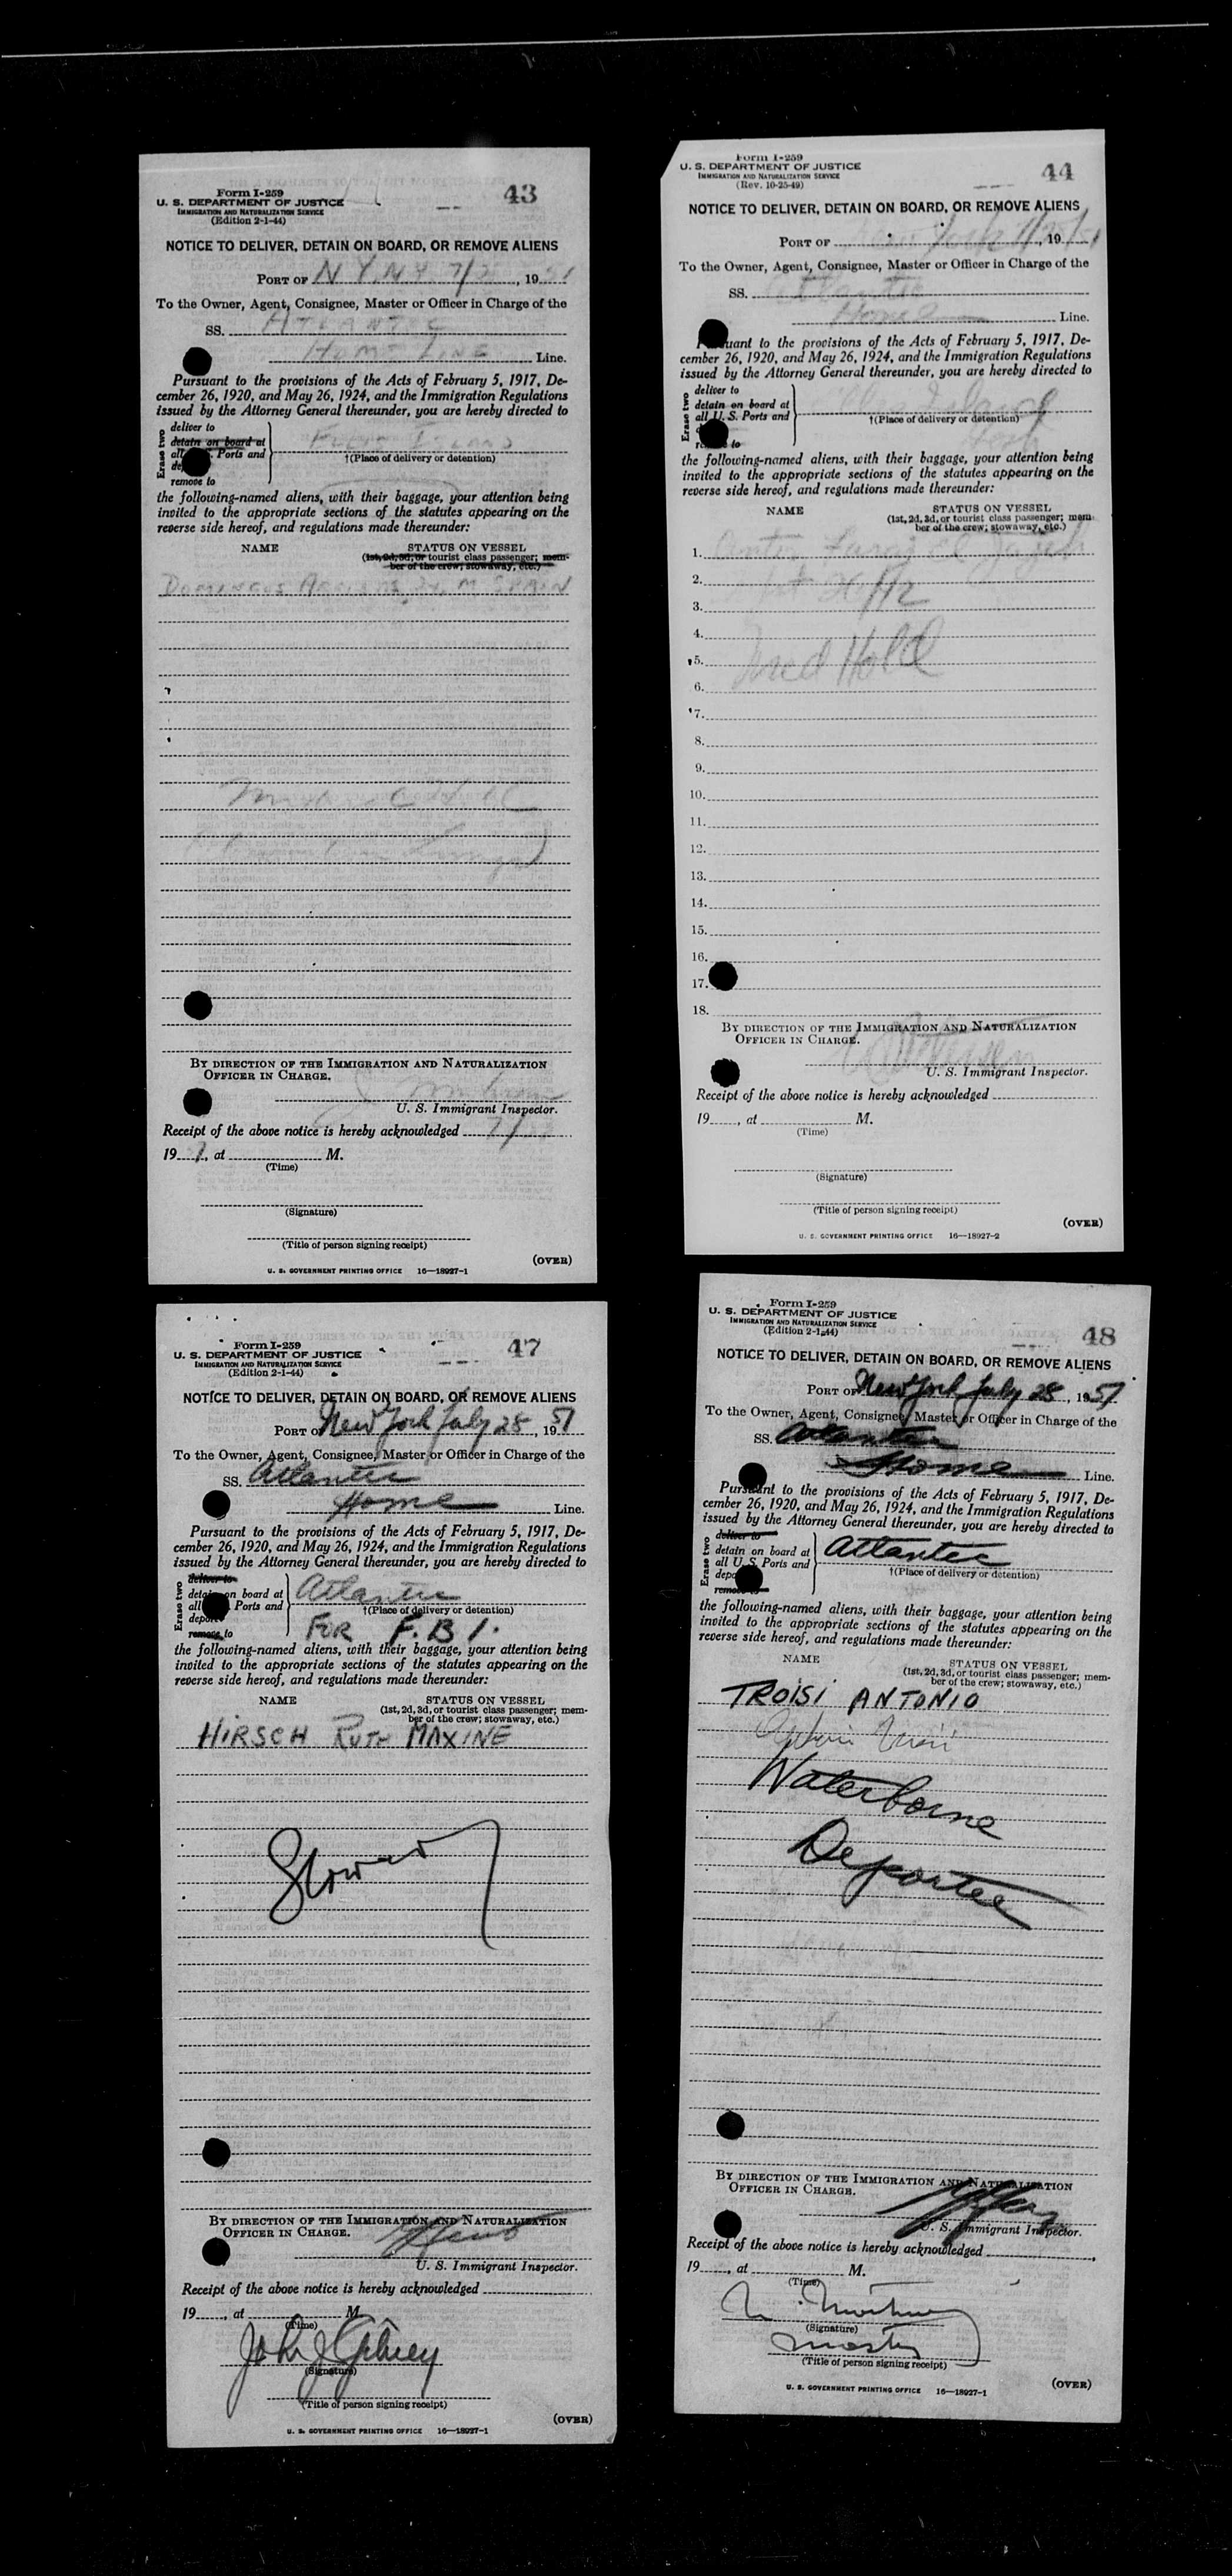 Form I-259
U. S. DEPARTMENT OF JUSTICE
IMMIGRATION AND NATURALIZATION SERVICE
(Edition 2-1-44)
43
NOTICE TO DELIVER, DETAIN ON BOARD, OR REMOVE ALIENS
PORT OF N.Y. N.Y. 7/ , 19 51
To the Owner, Agent, Consignee, Master or Officer in Charge of the
SS. ATLANTIC
HOME LINE Line.
Pursuant to the provisions of the Acts of February 5, 1917, De-
cember 26, 1920, and May 26, 1924, and the Immigration Regulations
issued by the Attorney General thereunder, you are hereby directed to
Erase two
deliver to
detain on board at
all Ports and
remove to
ISLAND
†(Place of delivery or detention)
the following-named aliens, with their baggage, your attention being
invited to the appropriate sections of the statutes appearing on the
reverse side hereof, and regulations made thereunder:
NAME STATUS ON VESSEL
(1st, 2d, 3d, or tourist class passenger; mem-
ber of the crew; stowaway, etc.)
DOMINGUS M SPAIN
BY DIRECTION OF THE IMMIGRATION AND NATURALIZATION
OFFICER IN CHARGE.
U. S. Immigrant Inspector.
Receipt of the above notice is hereby acknowledged 7/
19 , at M.
(Time)
(Signature)
(Title of person signing receipt)
(OVER)
U. S. GOVERNMENT PRINTING OFFICE 16—18927-1
Form I-259
U. S. DEPARTMENT OF JUSTICE
IMMIGRATION AND NATURALIZATION SERVICE
(Rev. 10-25-49)
44
NOTICE TO DELIVER, DETAIN ON BOARD, OR REMOVE ALIENS
PORT OF New York , 19
To the Owner, Agent, Consignee, Master or Officer in Charge of the
SS. Atlantic
Home Line.
Pursuant to the provisions of the Acts of February 5, 1917, De-
cember 26, 1920, and May 26, 1924, and the Immigration Regulations
issued by the Attorney General thereunder, you are hereby directed to
Erase two
deliver to
detain on board at
all U. S. Ports and
to
Ellis Island
†(Place of delivery or detention)
the following-named aliens, with their baggage, your attention being
invited to the appropriate sections of the statutes appearing on the
reverse side hereof, and regulations made thereunder:
NAME STATUS ON VESSEL
(1st, 2d, 3d, or tourist class passenger; mem-
ber of the crew; stowaway, etc.)
1.
2.
3.
4.
5. Med Hold
6.
7.
8.
9.
10.
11.
12.
13.
14.
15.
16.
17.
18.
BY DIRECTION OF THE IMMIGRATION AND NATURALIZATION
OFFICER IN CHARGE.
U. S. Immigrant Inspector.
Receipt of the above notice is hereby acknowledged
19 , at M.
(Time)
(Signature)
(Title of person signing receipt)
(OVER)
U. S. GOVERNMENT PRINTING OFFICE 16—18927-2
Form I-259
U. S. DEPARTMENT OF JUSTICE
IMMIGRATION AND NATURALIZATION SERVICE
(Edition 2-1-44)
47
NOTICE TO DELIVER, DETAIN ON BOARD, OR REMOVE ALIENS
PORT OF New York July 28, 1951
To the Owner, Agent, Consignee, Master or Officer in Charge of the
SS. Atlantic
Home Line.
Pursuant to the provisions of the Acts of February 5, 1917, De-
cember 26, 1920, and May 26, 1924, and the Immigration Regulations
issued by the Attorney General thereunder, you are hereby directed to
Erase two
deliver to
detain on board at
all Ports and
deport
remove to
Atlantic
†(Place of delivery or detention)
FOR F.B.I.
the following-named aliens, with their baggage, your attention being
invited to the appropriate sections of the statutes appearing on the
reverse side hereof, and regulations made thereunder:
NAME STATUS ON VESSEL
(1st, 2d, 3d, or tourist class passenger; mem-
ber of the crew; stowaway, etc.)
HIRSCH RUTH MAXINE
BY DIRECTION OF THE IMMIGRATION AND NATURALIZATION
OFFICER IN CHARGE.
U. S. Immigrant Inspector.
Receipt of the above notice is hereby acknowledged
19 , at M.
(Time)
John J
(Signature)
(Title of person signing receipt)
(OVER)
U. S. GOVERNMENT PRINTING OFFICE 16—18927-1
Form I-259
U. S. DEPARTMENT OF JUSTICE
IMMIGRATION AND NATURALIZATION SERVICE
(Edition 2-1-44)
48
NOTICE TO DELIVER, DETAIN ON BOARD, OR REMOVE ALIENS
PORT OF New York July 28, 1951
To the Owner, Agent, Consignee, Master or Officer in Charge of the
SS. Atlantic
Home Line.
Pursuant to the provisions of the Acts of February 5, 1917, De-
cember 26, 1920, and May 26, 1924, and the Immigration Regulations
issued by the Attorney General thereunder, you are hereby directed to
Erase two
deliver to
detain on board at
all U. S. Ports and
remove
Atlantic
†(Place of delivery or detention)
the following-named aliens, with their baggage, your attention being
invited to the appropriate sections of the statutes appearing on the
reverse side hereof, and regulations made thereunder:
NAME STATUS ON VESSEL
(1st, 2d, 3d, or tourist class passenger; mem-
ber of the crew; stowaway, etc.)
TROISI ANTONIO
Waterborne
Deportee
BY DIRECTION OF THE IMMIGRATION AND NATURALIZATION
OFFICER IN CHARGE.
U. S. Immigrant Inspector.
Receipt of the above notice is hereby acknowledged
19 , at M.
(Time)
(Signature)
(Title of person signing receipt)
(OVER)
U. S. GOVERNMENT PRINTING OFFICE 16—18927-1